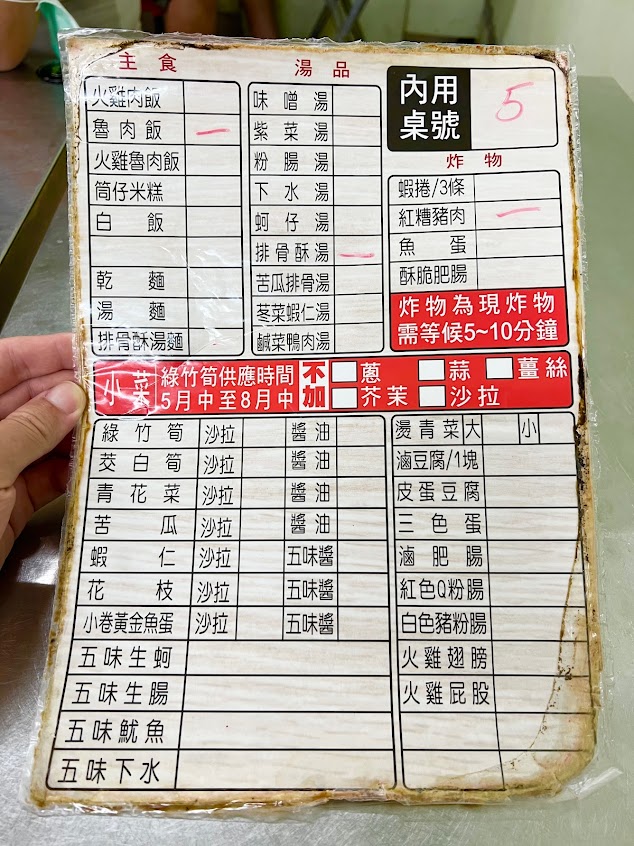 主食
火雞肉飯
魯肉飯 一
火雞魯肉飯
筒仔米糕
白飯
乾麵
湯麵
排骨酥湯麵
湯品
味噌湯
紫菜湯
粉腸湯
下水湯
蚵仔湯
排骨酥湯 一
苦瓜排骨湯
茎菜蝦仁湯
鹹菜鴨肉湯
內用桌號 5
炸物
蝦捲/3條
紅糟豬肉 一
魚蛋
酥脆肥腸
炸物為現炸物
需等候5~10分鐘
小菜
綠竹筍供應時間
5月中至8月中
不加 蔥 蒜 薑絲
芥茉 沙拉
綠竹筍 沙拉 醬油
茭白筍 沙拉 醬油
青花菜 沙拉 醬油
苦瓜 沙拉 醬油
蝦仁 沙拉 五味醬
花枝 沙拉 五味醬
小卷黃金魚蛋 沙拉 五味醬
五味生蚵
五味生腸
五味魷魚
五味下水
燙青菜 大 小
滷豆腐/1塊
皮蛋豆腐
三色蛋
滷肥腸
紅色Q粉腸
白色豬粉腸
火雞翅膀
火雞屁股